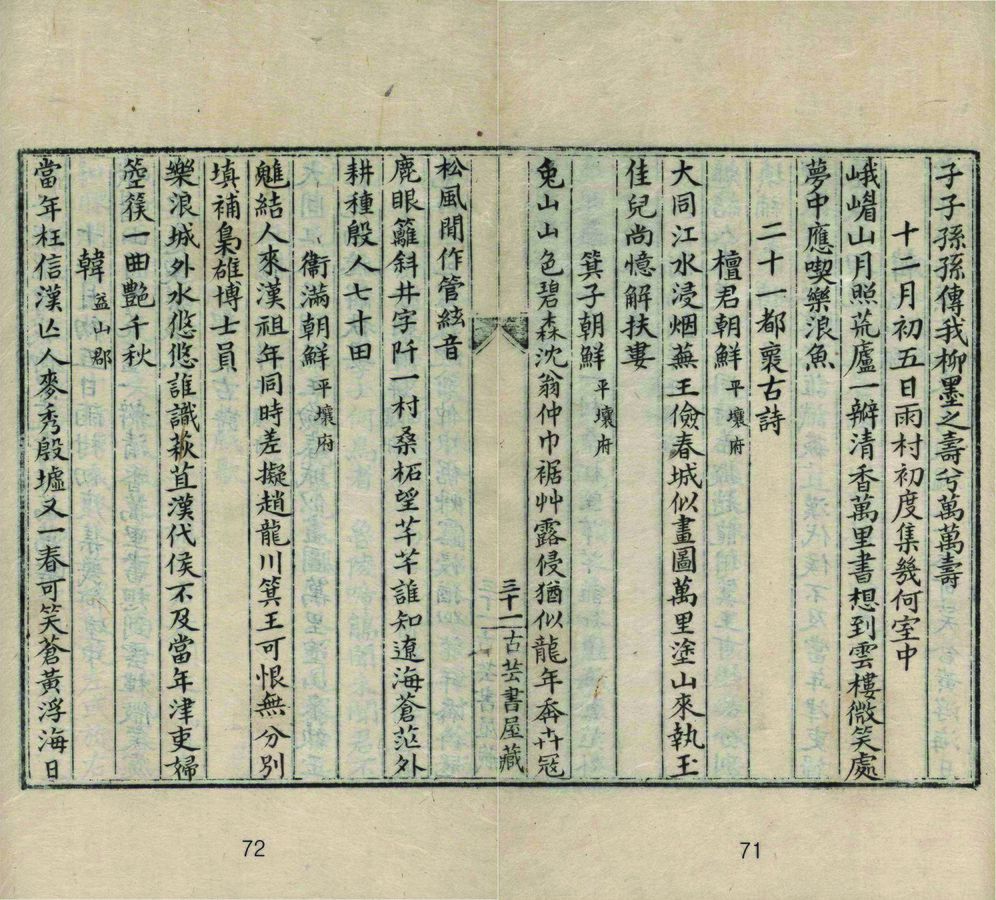 子子孫孫傳我柳墨之壽兮萬萬壽
十二月初五日雨村初度集幾何室中
峨嵋山月照荒廬一瓣清香萬里書想到雲樓微笑處
夢中應喫樂浪魚
二十一都褱古詩
檀君朝鮮 平壤府
大同江水浸烟蕪王儉春城似畫圖萬里塗山來執玉
佳兒尚憶解扶婁
箕子朝鮮 平壤府
兔山山色碧森沈翁仲巾裾艸露侵猶似龍年奔卉冦
三十二 古芸書屋藏
松風閒作管絃音
鹿眼籬斜井字阡一村桑柘望芊芊誰知遼海蒼茫外
耕種殷人七十田
衞滿朝鮮 平壤府
魋結人來漢祖年同時差擬趙龍川箕王可恨無分別
填補梟雄博士員
樂浪城外水悠悠誰識萩苴漢代侯不及當年津吏婦
箜篌一曲艷千秋
韓 益山郡
當年枉信漢亾人麥秀殷墟又一春可笑蒼黃浮海日
71
72